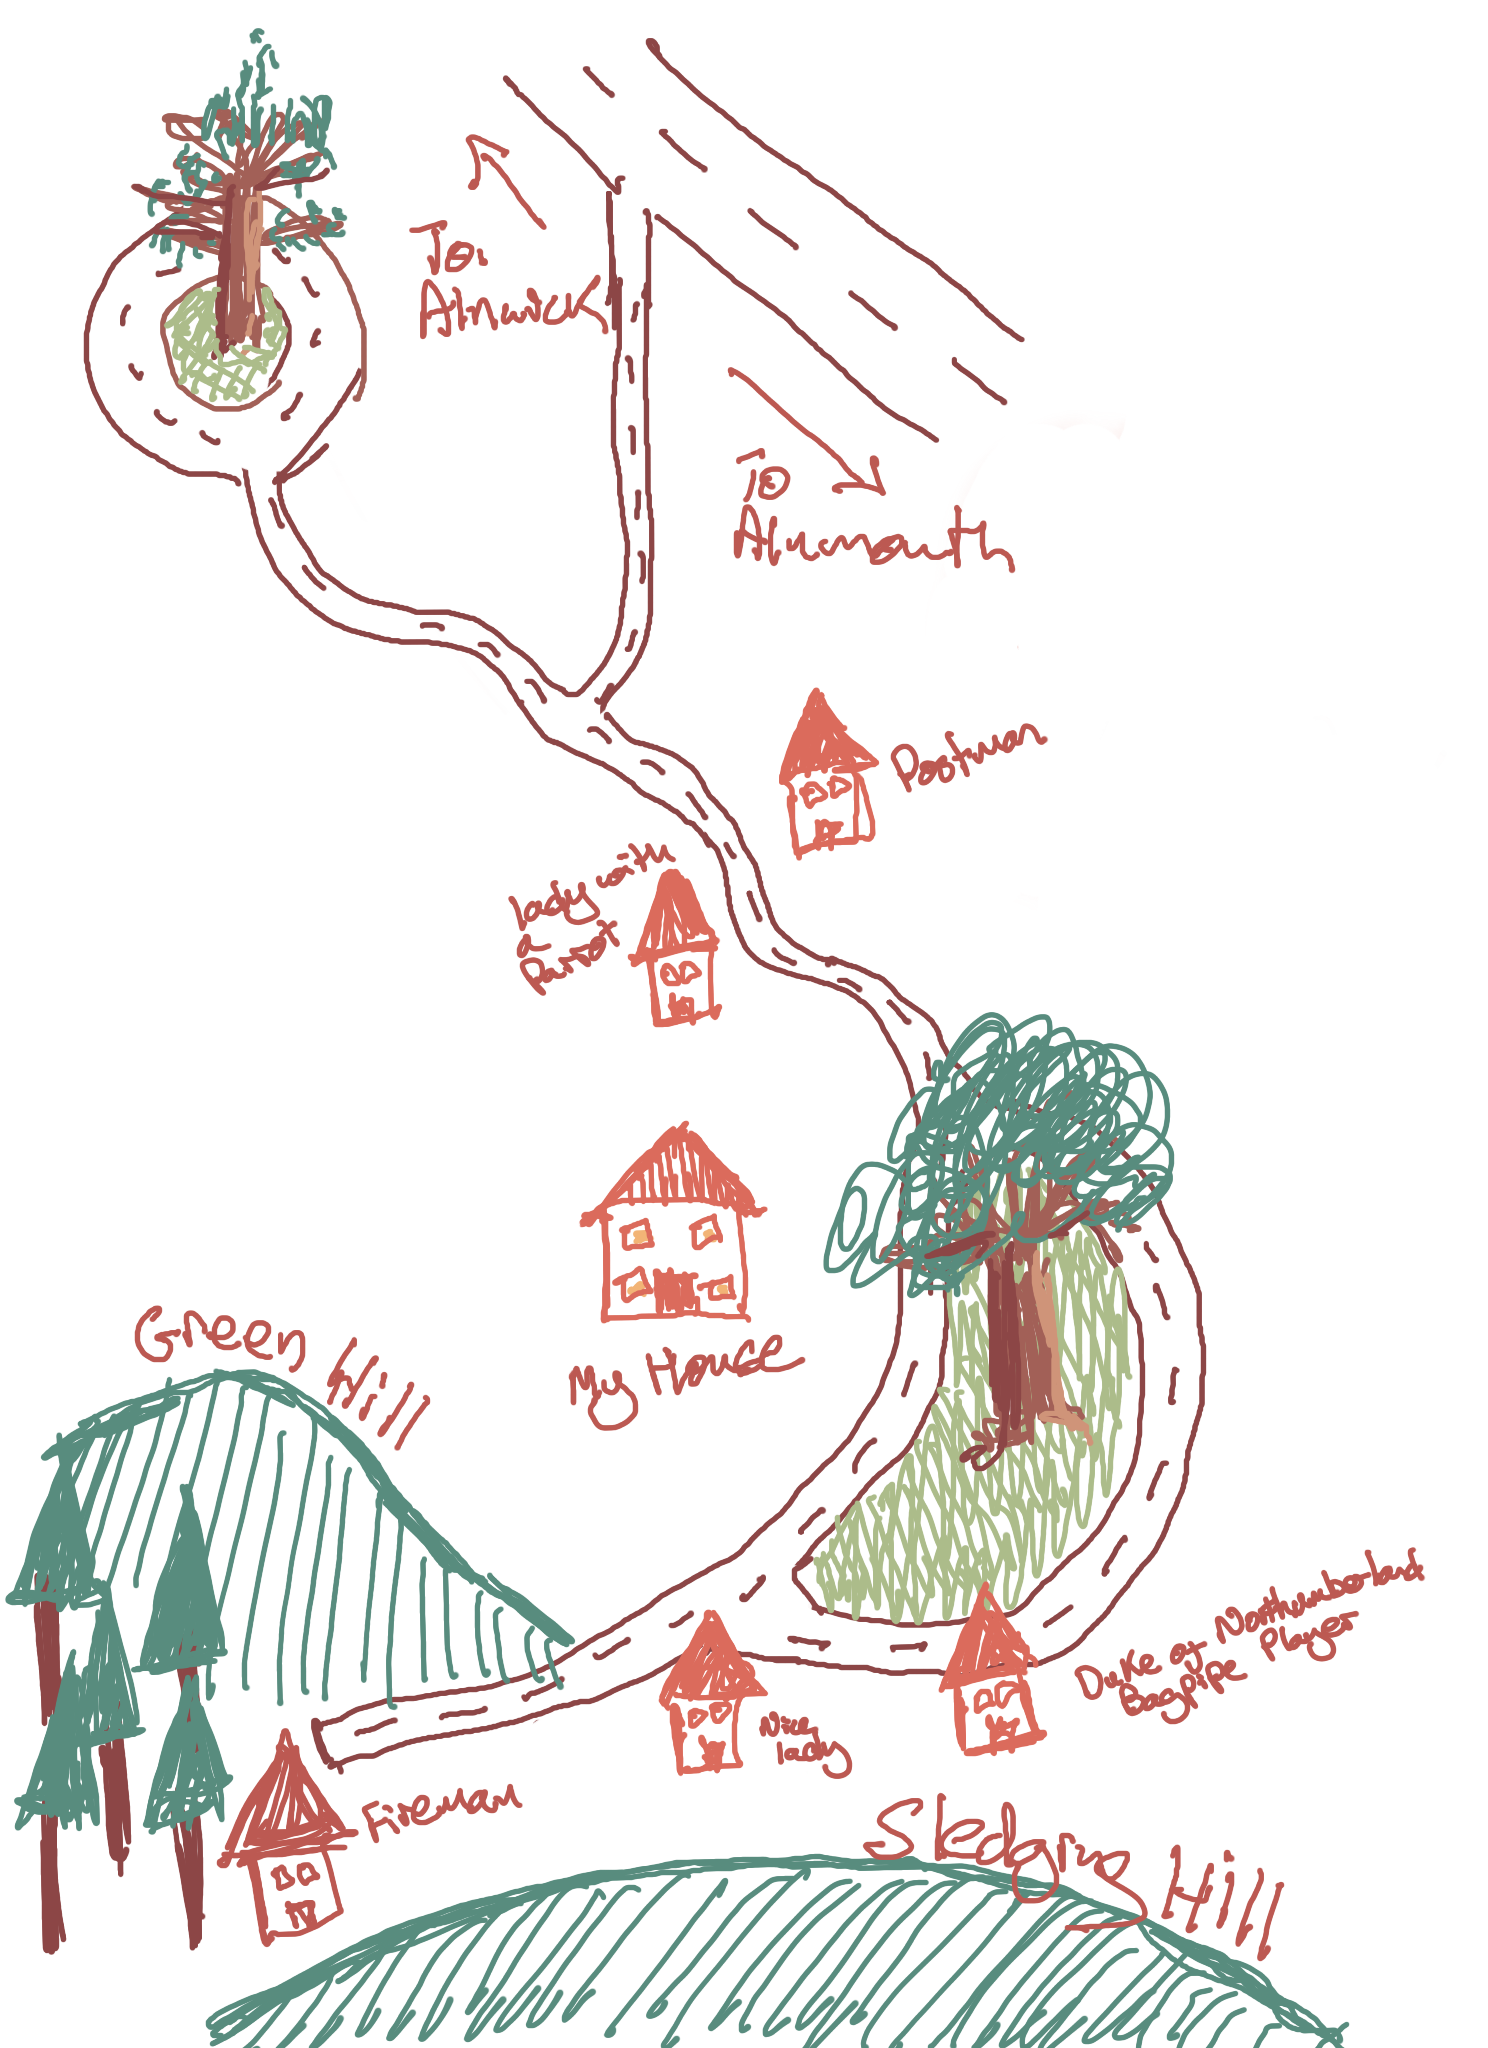 To
Alnwick
To
Alnmouth
Postman
lady with
a
Parrot
My House
Green Hill
Duke of Northumberland
Bagpipe Player
Nice
lady
Fireman
Sledging Hill